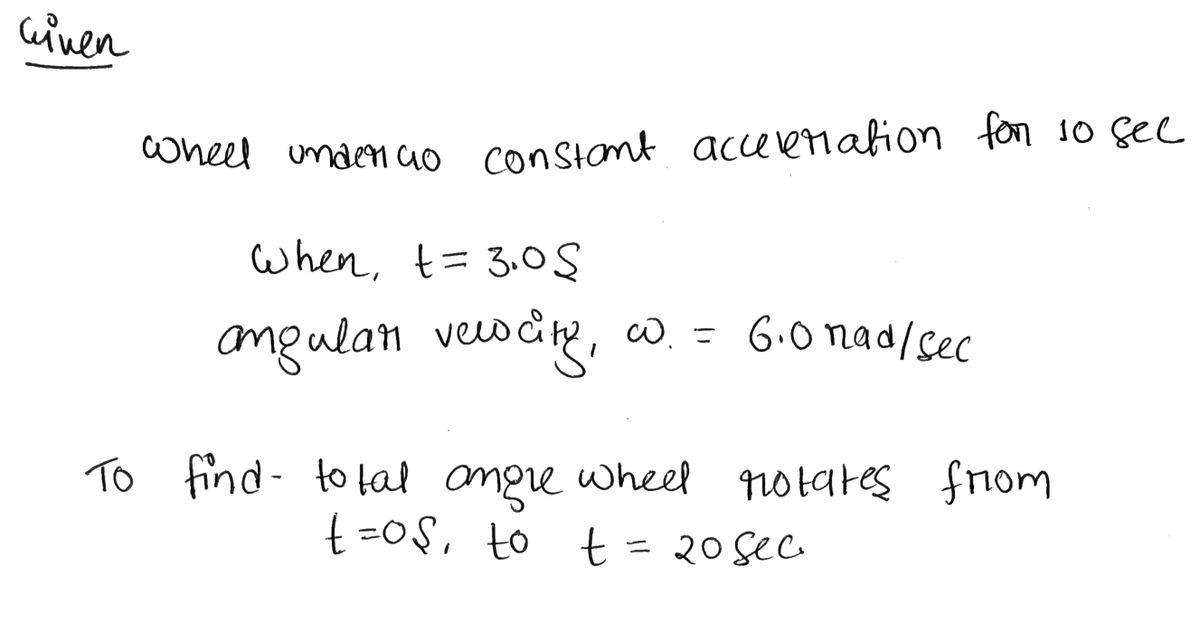 Given
wheel undergo constant acceleration for 10 sec
when, t = 3.0 s
angular velocity, ω. = 6.0 rad/sec
To find - total angle wheel rotates from
t = 0 s. to t = 20 sec